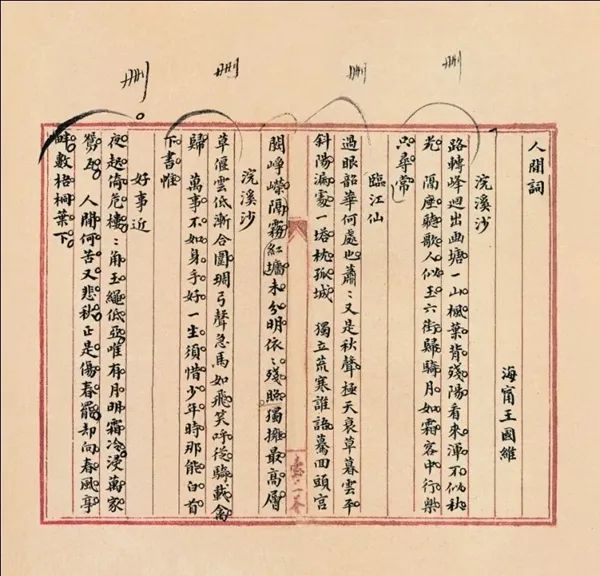 删
删
删
删
人間詞
海甯王國維
浣溪沙
路轉峰迴出曲塘一山楓葉背殘陽看來渾不似秋
光 隔座聽歌人似玉六街歸騎月如霜客中行樂
只尋常
臨江仙
過眼韶華何處也蕭〻又是秋聲極天衰草暮雲平
斜陽漏處一塔枕孤城 獨立荒寒誰語驀回頭宮
闕崢嶸隔霧紅牆未分明依〻殘照獨擁最高層
浣溪沙
草偃雲低漸合圍琱弓聲急馬如飛笑呼從騎載禽
歸 萬事不如身手好一生須惜少年時那能白首
下書帷
好事近
夜起倚危樓〻角玉繩低亞唯有月明霜冷浸萬家
鴛瓦 人間何苦又悲秋正是傷春罷却向春風亭
畔數梧桐葉下